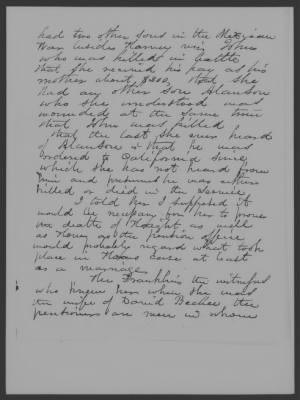 had two other sons in the Mexican
War besides Harvey viz John
who was killed in battle
that she received his pay as his
mother about $200. that she
had any other son Alanson
who she understood was
wounded at the same time
that John was killed
that the last she ever heard
of Alanson is that he was
ordered to California since
which she has not heard from
him and presumes he was either
killed or died in the service.
I told her I supposed it
would be necessary for her to prove
death of as well
as Harvey as the pension office
would probably regard what took
place in case at least
as a marriage
The Franklins the witnesses
who knew her when she was
the wife of David Beebee the
pensioners are men in whom